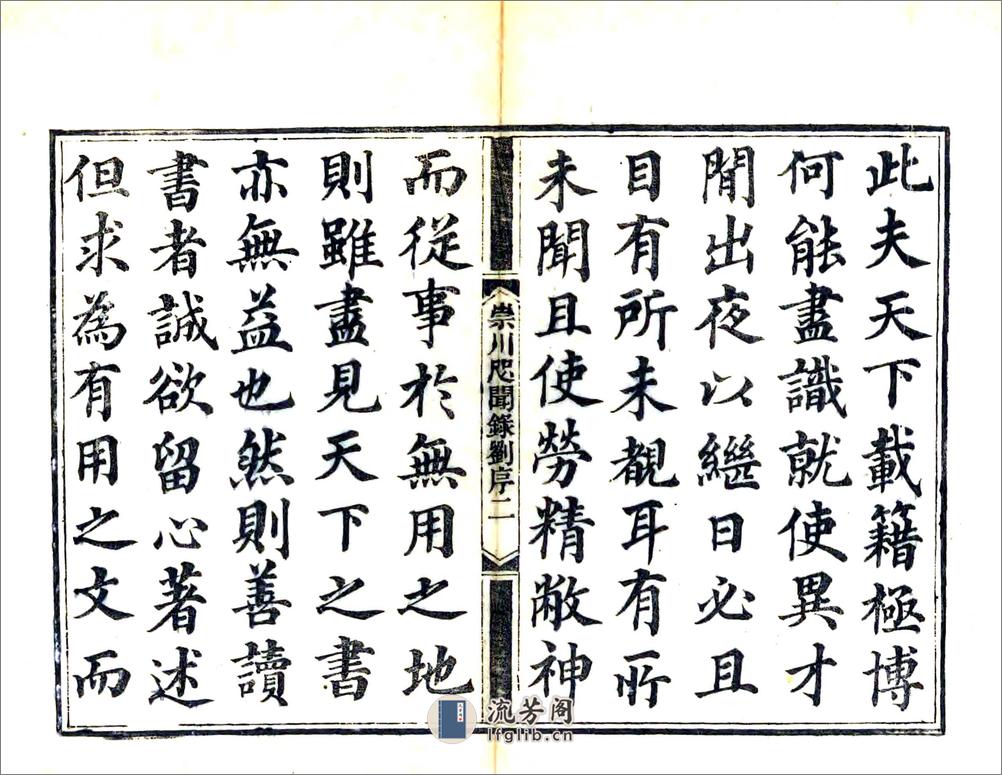 此夫天下載籍極博
何能盡識就使異才
間出夜以繼日必且
目有所未覩耳有所
未聞且使勞精敝神
崇川咫聞錄劉序二
而從事於無用之地
則雖盡見天下之書
亦無益也然則善讀
書者誠欲留心著述
但求為有用之文而
流芳阁
lfglib.cn